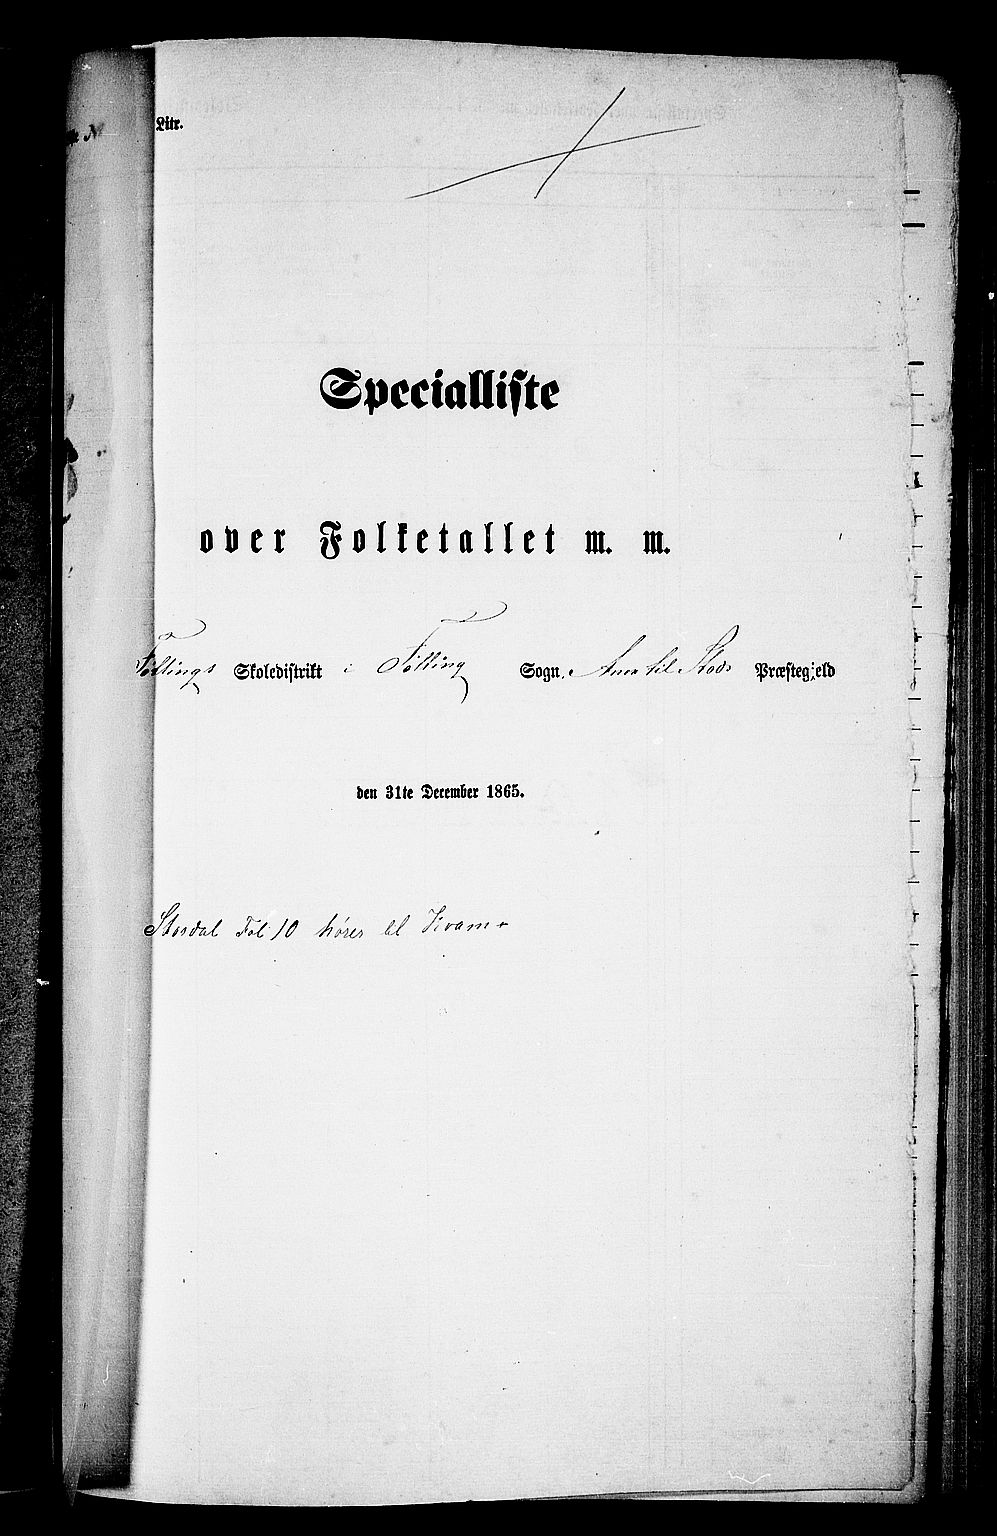 Litr.
Specialliste
over Folketallet m. m.
Føllings Skoledistrikt i Følling Sogn, Anex til Stods Præstegjeld
den 31te December 1865.
Stordal Fol 10 hører til Kvam